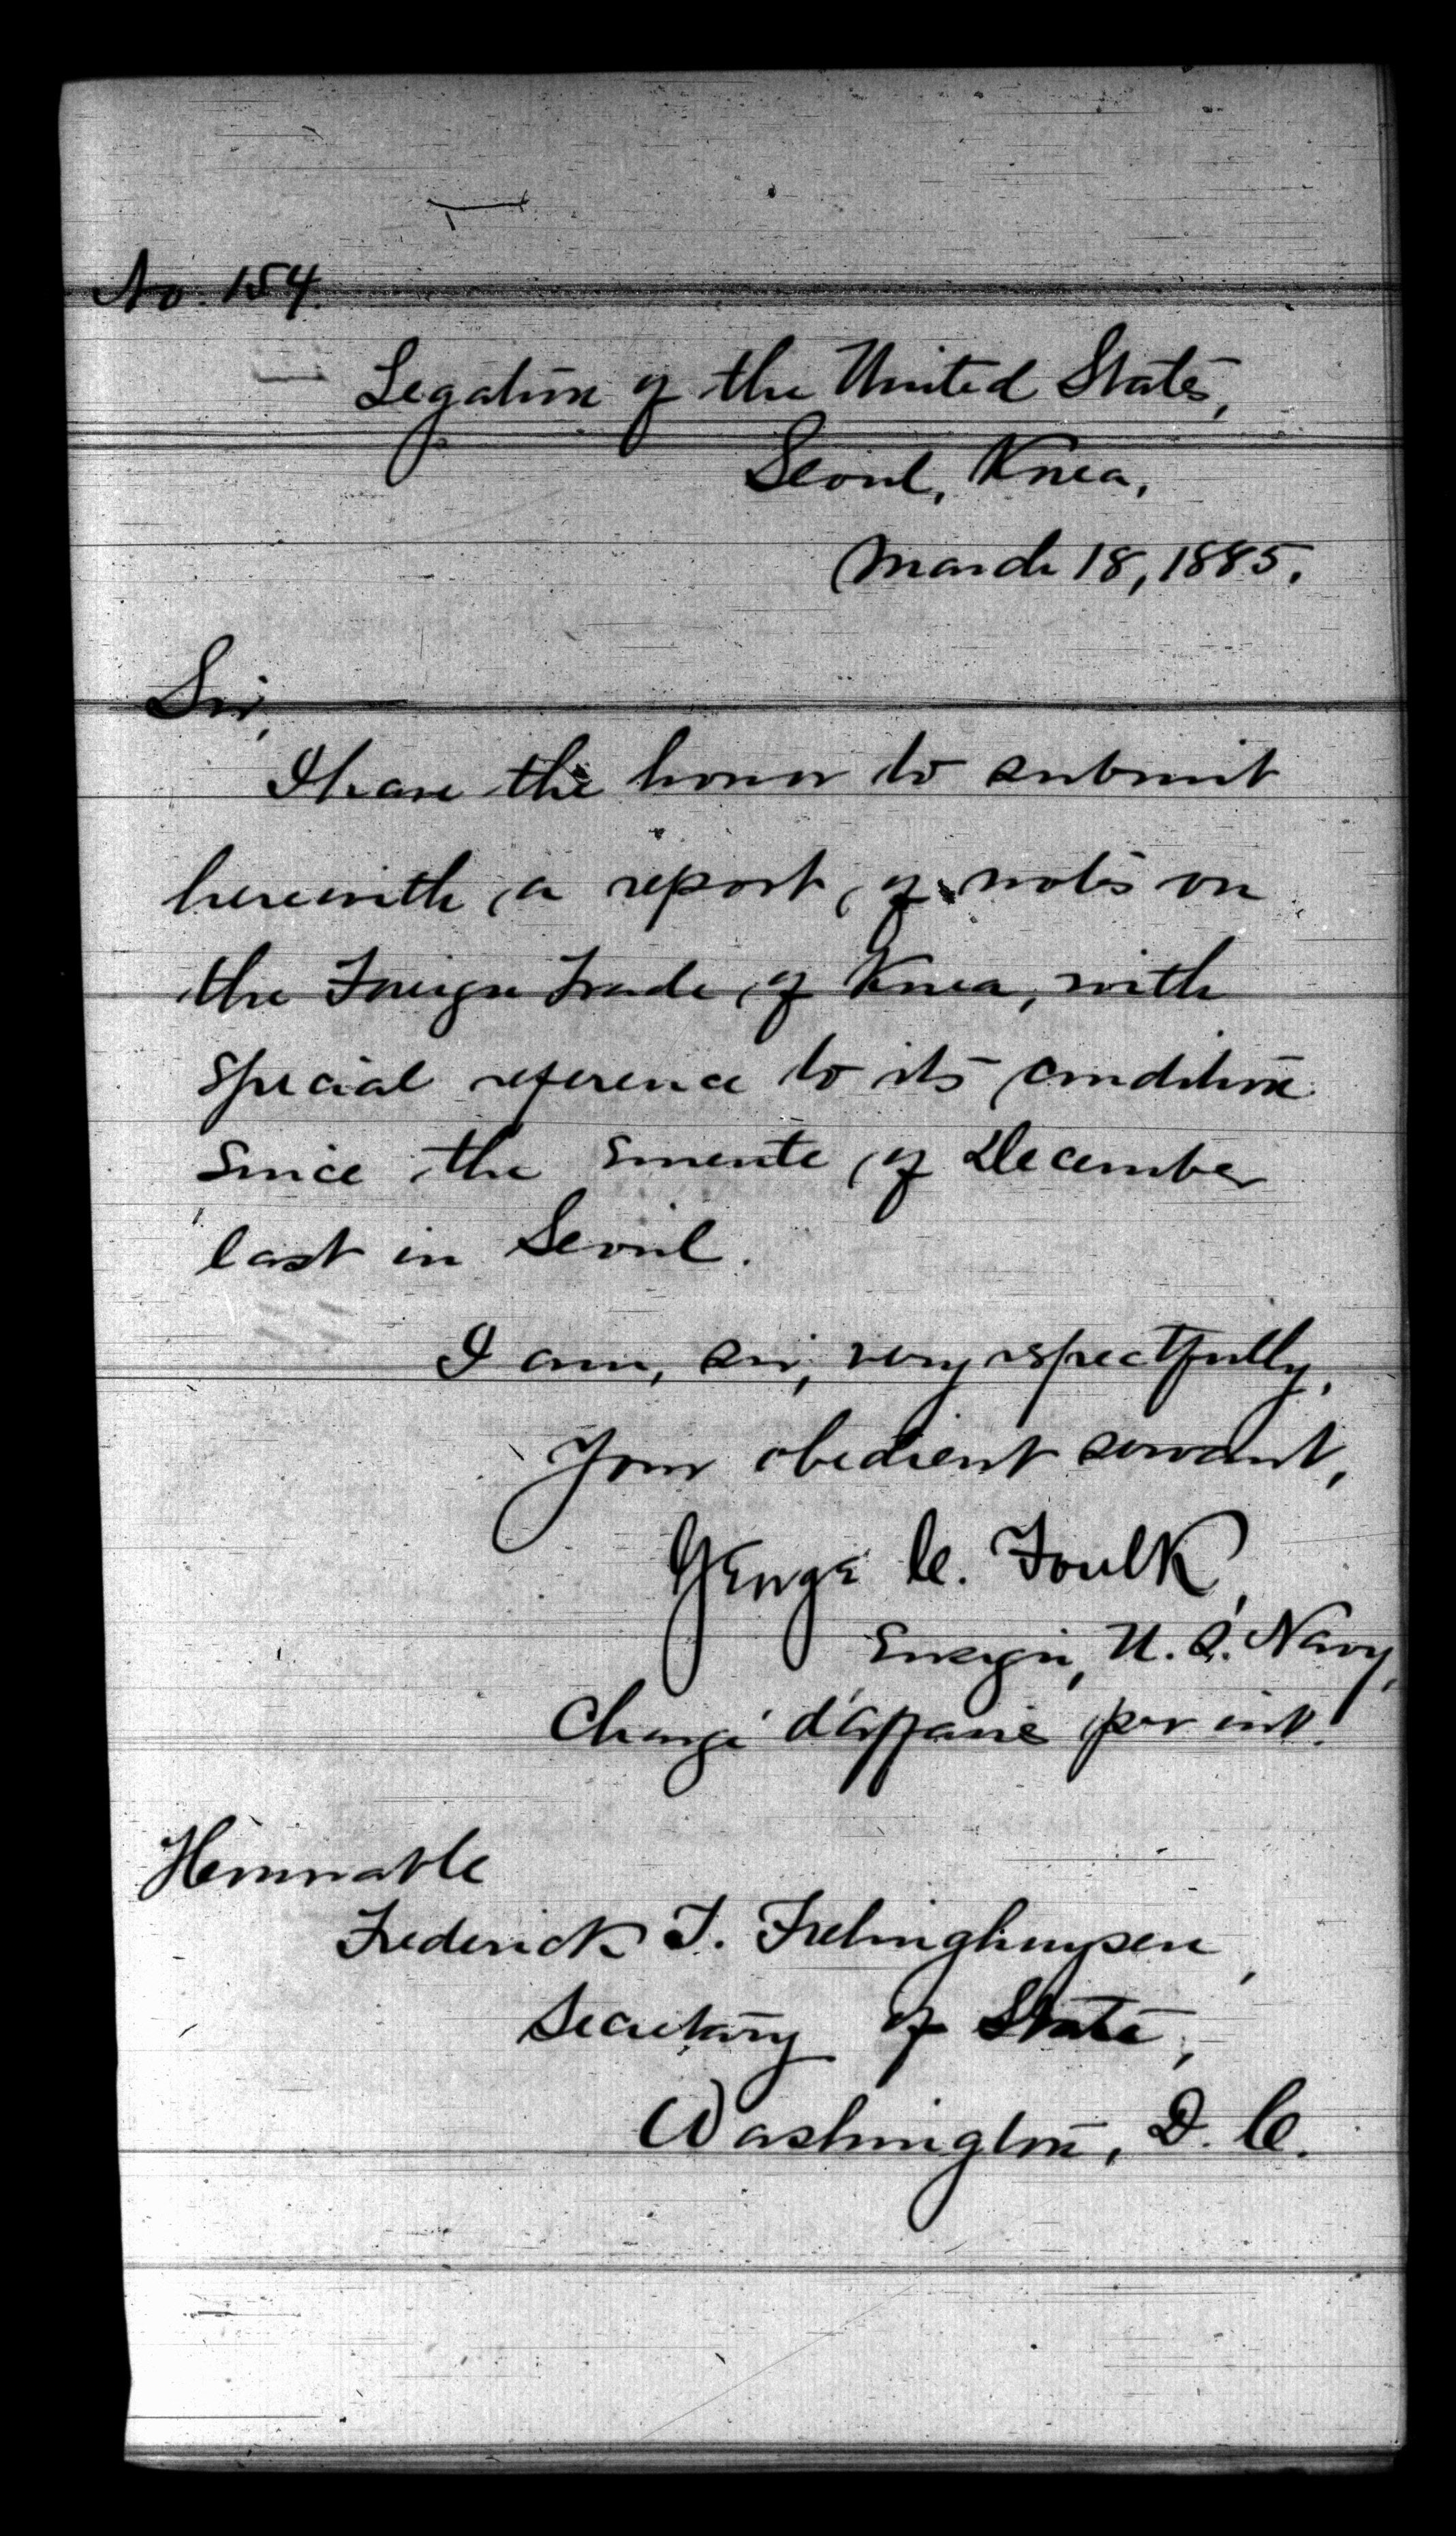 No. 154.
Legation of the United States,
Seoul, Korea,
March 18, 1885.
Sir,
I have the honor to submit
herewith, a report, of notes on
the Foreign Trade, of Korea, with
special reference to its condition
since the emeute, of December
last in Seoul.
I am, sir, very respectfully,
Your obedient servant,
George C. Foulk,
Ensign, U. S. Navy,
Chargé d'affaires per int.
Honorable
Frederick T. Frelinghuysen,
Secretary of State,
Washington, D. C.